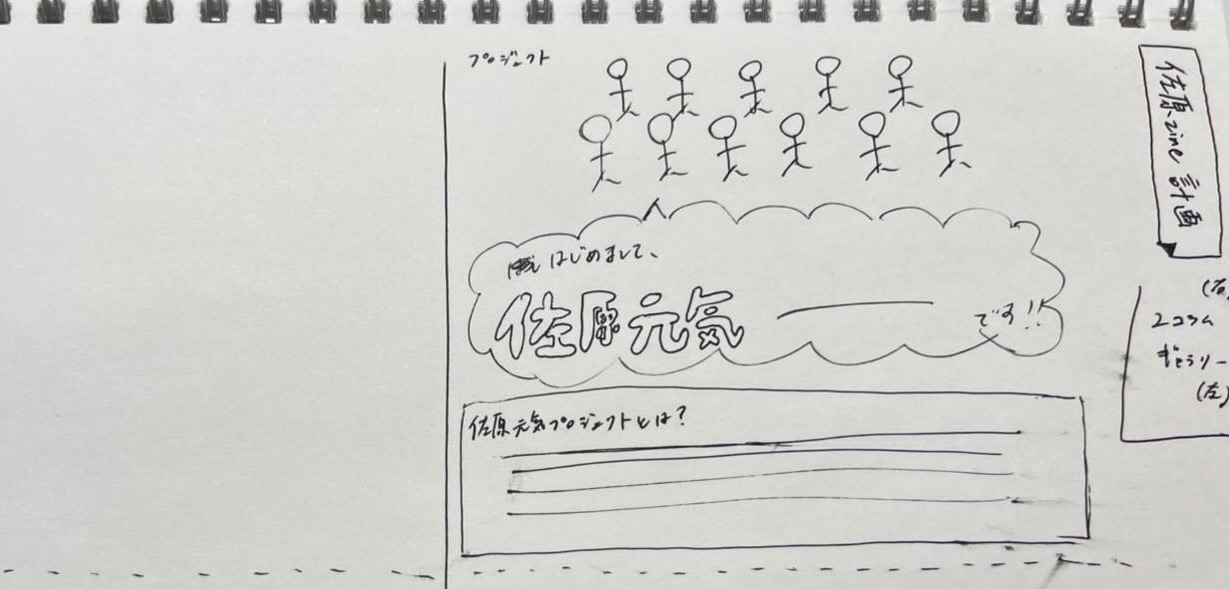 プロジェクト
はじめまして、
佐原元気
です!!
佐原元気プロジェクトとは?
佐原zine計画
(右)
2コラム
ギャラリー
(左)